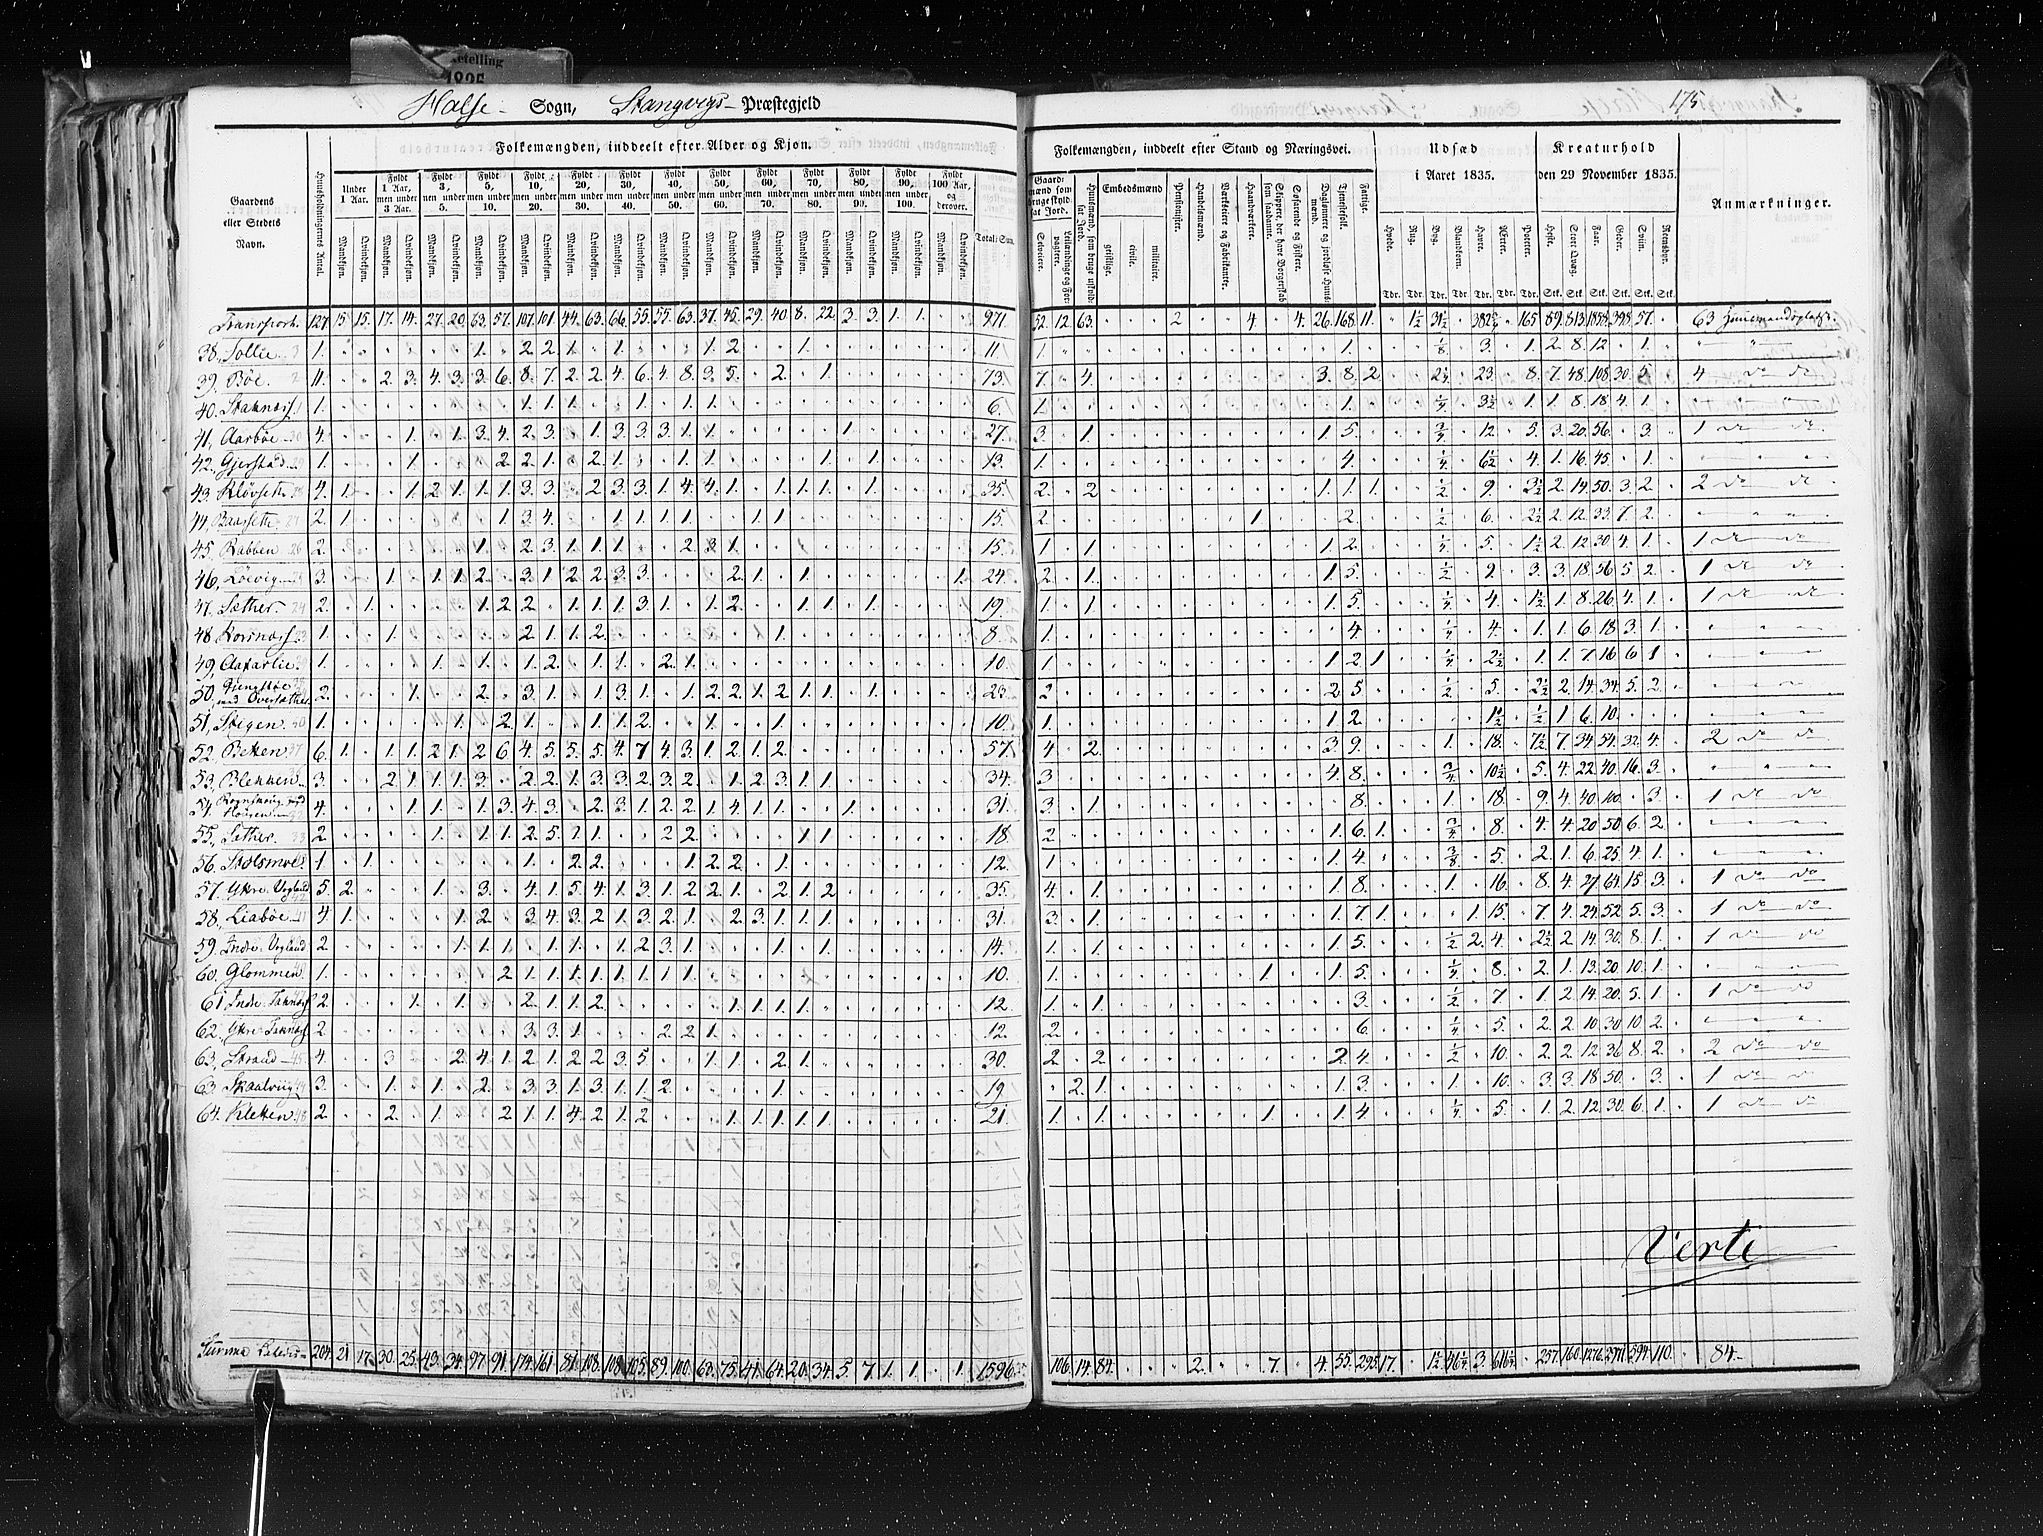 Halse Sogn, Stangvigs Præstegjeld
175
Folkemængden, inddeelt efter Alder og Kjøn.
Folkemængden, inddeelt efter Stand og Næringsvei.
Udsæd i Aaret 1835.
Kreaturhold den 29 November 1835.
Anmærkninger.
Gaardens eller Stedets Navn.
Huusholdningernes Antal.
Under 1 Aar.
Fyldt 1 Aar, men under 3 Aar.
Fyldt 3, men under 5.
Fyldt 5, men under 10.
Fyldt 10, men under 20.
Fyldt 20, men under 30.
Fyldt 30, men under 40.
Fyldt 40, men under 50.
Fyldt 50, men under 60.
Fyldt 60, men under 70.
Fyldt 70, men under 80.
Fyldt 80, men under 90.
Fyldt 90, men under 100.
Fyldt 100 Aar, og derover.
Mandkjøn. Qvindekjøn.
Total-Sum.
Gaardmænd som bruge skyldsat Jord.
Selveiere.
Leilændinge og Forpagtere.
Huusmænd, som bruge uskyldsat Jord.
Embedsmænd
geistlige. civile. militaire.
Pensionister.
Handelsmænd.
Værkseiere og Fabrikanter.
Haandværkere.
Skippere, der have Borgerskab som saadanne.
Søfarende og Fiskere.
Daglønnere og jordløse Huusmænd.
Tjenestefolk.
Fattige.
Hvede. Rug. Byg. Blandkorn. Havre. Ærter. Poteter.
Heste. Stort Qvæg. Faar. Geder. Sviin. Rensdyr.
Transport. 127. 15. 15. 17. 14. 27. 20. 63. 57. 107. 101. 44. 63. 66. 55. 55. 63. 37. 45. 29. 40. 8. 22. 3. 3. 1. 1. 971. 52. 12. 63. 2 4. 4. 26. 168. 11. 1½ 31½ 165 89. 813. 1858. 398. 57. 63 Huusmandspladse.
38. Tollie 1. 1. 2 2. 1. 1. 2. 1. 11. 1. 1. ⅛ 3. 1. 2. 8. 12 1.
39. Bøe. 11. 2. 3. 4. 3. 3. 6. 8. 7. 2. 2. 4. 6. 4. 8. 3. 5. 2. 1. 73. 7. 4. 3. 8. 2 2¼ 23. 8. 7. 48. 108. 30. 5. 4 do do
40. 1. 1. 1. 1. 1. 1. 1. 6. 1. 1. ¼ 3½ 1. 1. 8. 18. 4. 1.
41. Aarbøe 4. 1. 1. 3. 4. 2. 3. 1. 3. 3. 3. 1. 1. 1. 27. 3. 1. 1. 5. ¾ 12. 5. 3. 20. 56. 3. 1 do do
42. Gjerstad 1. 1. 2. 2. 1. 2. 1. 1. 1. 1. 1. 13. 1. 4. ¼ 6½ 4. 1. 16. 45. 1.
43. Kløvseth 4. 1. 1. 2. 1. 1. 1. 3. 3. 2. 3. 3. 1. 4. 4. 1. 1. 1. 1. 1. 35. 2. 2 1. 1. 1. ½ 9. 3½ 2. 14. 50. 3. 2. 2 do do
44. 2. 1. 1. 3. 4. 1. 1. 1. 1. 1. 1. 15. 2. 1. 2. ½ 6. 2½ 2. 12. 33. 7. 2.
45. Rabben 2. 1. 2. 3. 1. 1. 1. 2. 3. 1. 15. 1. 1. 1. 2. ¼ 5. 1½ 2. 12. 30. 4. 1. 1 do do
46. Løevig 3. 1. 1. 1. 2. 3. 1. 2. 2. 3. 3. 2. 1. 1. 1. 24. 2. 1. 1. 5. ½ 9. 3. 3. 18. 56. 5. 2. 1 do do
47. Sæther 2. 1. 1. 2. 2. 1. 1. 1. 3. 1. 1. 2. 1. 1. 1. 19. 1. 1. 1. 5. ¼ 4. 1½ 1. 8. 26. 4. 1. 1 do do
48. Korsnæs 1. 1. 2. 1. 1. 2. 1. 8. 1. 4. ¼ 4. 1. 1. 6. 18. 3. 1.
49. 1. 1. 1. 1. 2. 1. 1. 2. 1. 10. 1. 1 2 1 ¼ 2½ 1. 1. 7. 16 6 1
50. med 2. 1. 2. 3. 1. 1. 3. 1. 1. 2. 2. 1. 2. 1. 1. 1. 23. 2 2 5. ½ 5. 2½ 2. 14. 34. 5. 2.
51. Stigen. 1. 1. 2. 1. 1. 1. 2. 1. 1. 10. 1. 1 2. 1½ ½ 1. 6. 10.
52. 6. 1. 1. 1. 2. 1. 2 6. 4. 5. 5. 5. 4. 7 4. 3. 1. 2. 1. 2. 57. 4. 2. 3 9. 1. 18. 7½ 7. 34. 54. 32. 4. 2 do do
53. Blekken. 3. 2 1. 1. 1. 3. 2 2. 1. 3. 3. 2. 3. 2. 1. 2. 3. 1. 1. 34. 3 4. 8. ¾ 10½ 5. 4. 22. 40. 16. 3.
54. 4. 1 1. 1. 3. 4. 3. 2. 3. 1. 2. 2. 1. 4. 1. 1. 1. 31. 3. 1. 8. 1. 18. 9. 4. 40. 100. 3. 1 do do
55. Sæther. 2. 1. 1. 1. 2. 5. 1. 1. 2. 2. 1. 1. 18. 2. 1. 6. 1. ¾ 8. 4. 4. 20. 50. 6. 2.
56. 1. 1. 1. 2. 2. 1. 2. 2. 1. 12. 1. 1. 4. ⅜ 5. 2. 1. 6. 25. 4. 1.
57. Ytre Vogland 5. 2. 1. 3. 4. 1. 5. 4. 1. 3. 1. 2. 2. 1. 2. 1. 2. 35. 4. 1. 1. 8. 1. 16. 8. 4. 27 64. 15. 3. 1 do do
58. Liabøe 4. 1. 1. 2. 3 4. 3. 2. 1. 3. 2. 1. 2. 3. 1. 1. 1. 31. 3. 1. 1. 7. 1. 1. 15. 7. 4. 24. 52. 5. 3. 1 do do
59. Indre Vogland 2. 1. 1. 1 1. 1. 1. 2 3. 1. 1. 1. 14. 1. 1. 1 5. ½ 2. 4. 2½ 2. 14. 30. 8. 1. 1 do do
60. Glommen 1. 2 1. 1. 1. 1. 1. 1. 1. 1. 10. 1. 1 1. 5. ¼ 8. 2. 1. 13. 20. 10. 1.
61 2. 1. 1. 2. 1. 1. 2. 1. 1. 1. 1. 12. 1. 1. 3. ½ 7. 1. 2. 14. 20. 5. 1. 1 do do
62. 2. 3. 3. 1. 2. 2. 1. 12. 2. 6. ¼ 5. 2. 2. 10. 30 10. 2.
63. Strand 4. 3 2. 4. 1. 2. 1. 2. 2. 3. 5. 1. 1. 2. 1. 30. 2. 2 2. 4. ½ 10. 2. 2. 12. 36 8. 2. 2 do do
63 Skaalvig 3. 1. 1. 2. 3. 3. 1. 3. 1. 1. 2. 1. 19. 2. 1. 1. 3. 1. 10. 3. 3. 18. 50. 3. 1 do do
64. Kletten 2. 2. 1. 2 1. 1. 4. 2. 1. 2 1. 1. 1. 1. 1. 21. 1. 1. 1. 1. 4. ¼ 5. 1. 2. 12. 30. 6. 1. 1 do do
Verte
Summa 204. 21 17. 30. 25. 43. 34. 97. 91. 174. 161. 81. 108. 108. 105. 89. 100. 63. 75. 41. 64. 20. 34. 5. 7. 1. 1. 1. 1596. 106. 14. 84. 2. 7. 4. 55. 295. 17. 1½ 46¼ 3. 616¼ 257. 160. 1276. 2711 594. 110. 84.